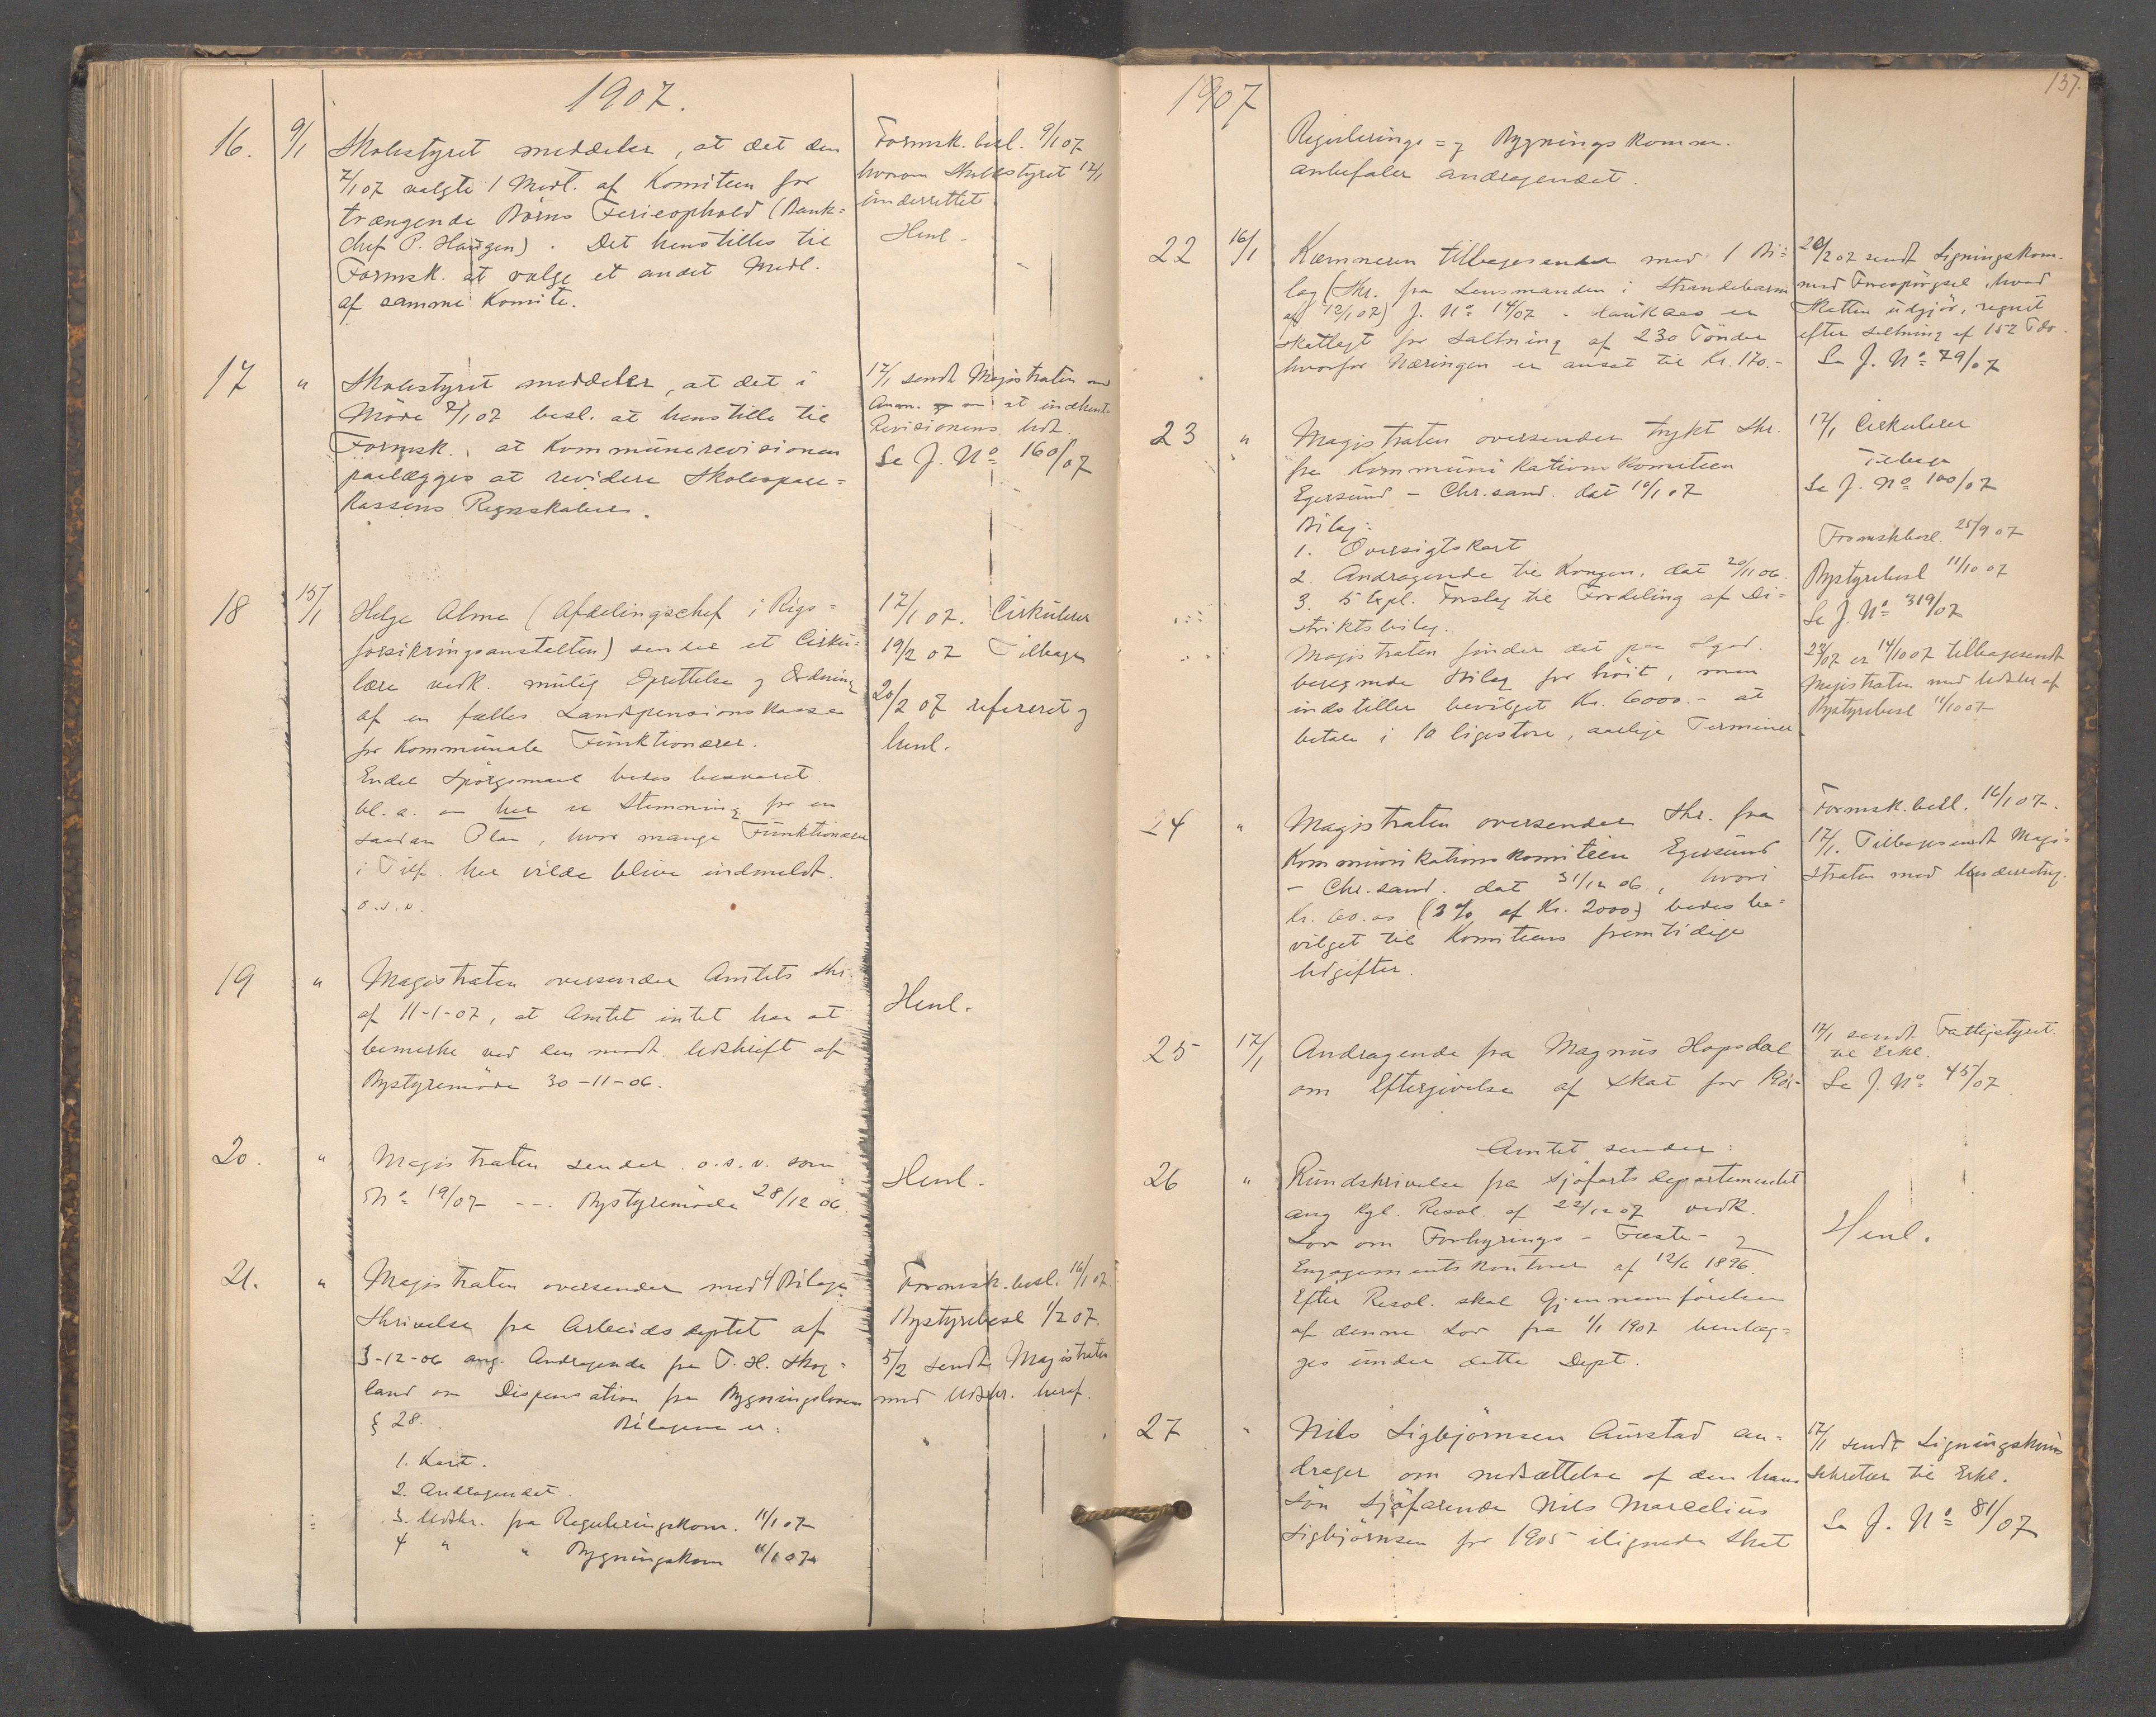 1907.
16. 9/1 Skolestyret meddeler, at det den
7/1 07 valgte 1 Medl. af Komiteen for
trængende Börns Ferieophold (Bank=
chef P. Haugen). Det henstilles til
Formsk. at vælge et andet Medl.
af samme Komite.
Formsk. besl. 9/1 07
hvorom Skolestyret 12/1
underrettet
Henl.
17 " Skolestyret meddeler, at det i
Möde 7/1 07 besl. at henstille til
Formsk., at Kommunerevisionen
paalægges at revidere Skolespare=
kassens Regnskaber.
17/1 sendt Magistraten
Anm. om at indhente
Revisionens Udt.
Se J. No 160/07
18 15/1 Helge Alme (Afdelingschef i Rigs=
forsikringsanstalten) sender et Cirku=
lære vedk. mulig Oprettelse og Ordning
af en fælles Landspensionskasse
for Kommunale Funktionærer.
Endel Spörgsmaal bedes besvaret
bl. a. om her er Stemning for en
saadan Plan, hvor mange Funktionærer
i Tilf. her vilde blive indmeldt.
o.s.v.
17/1 07. Cirkulerer
19/2 07 Tilbage
20/2 07 refereret og
henl.
19 " Magistraten oversender Amtets Skr.
af 11-1-07, at Amtet intet har at
bemerke ved den modt. Udskrift af
Bystyremöde 30-11-06.
Henl.
20. " Magistraten sender o.s.v. som
No 19/07 --- Bystyremöde 28/12 06.
Henl.
21. " Magistraten oversender med 4 Bilage
Skrivelse fra Arbeidsdeptet af
3-12-06 ang. Andragende fra T. H. Skog=
land om Dispensation fra Bygningsloven
§ 28. Bilagene er:
1. Kart.
2. Andragendet.
3. Udskr. fra Reguleringskom. 11/1 07
4 " " Bygningskom 11/1 07
Formsk. besl. 16/1 07.
Bystyrebesl 1/2 07.
5/2 sendt Magistraten
med Udskr. heraf.
137.
1907
Regulerings= og Bygningskomm.
anbefaler andragendet.
22 16/1 Kæmneren tilbagesender med 1 Bi=
lag (Skr. fra Lensmanden i Strandebarm
af 12/1 07) J. No 14/07 - Haukaas er
skatlagt for Saltning af 230 Tönder
hvorfor Næringen er ansat til Kr. 170.-
20/2 07 sendt Ligningskom.
med Forespörgsel, hvad
Skatten udgjör, regnet
efter Saltning af 152 Tdr.
Se J. No 79/07
23 " Magistraten oversender trykt Skr.
fra Kommunikationskomiteen
Egersund - Chr.sand. dat 10/1 07
Bilag:
1. Oversigtskart
2. Andragende til Kongen, dat 20/11 06.
3. 5 Expl. Forslag til Fordeling af Di=
striktsbilag.
Magistraten finder det paa Egd.
beregnede Bilag for höit, men
indstiller bevilget Kr. 6000.- at
betale i 10 ligestore, aarlige Terminer
17/1 Cirkulerer
Tilbage
Se J. No 100/07
Formskbesl. 25/9 07
Bystyrebesl 11/10 07
Se J. No 319/07
23/07 er 14/10 07 tilbagesendt
Magistraten med Udskr af
Bystyrebesl 11/10 07
24 " Magistraten oversender Skr. fra
Kommunikationskomiteen Egersund
- Chr.sand. dat 31/12 06, hvori
Kr. 60.00 (3% af Kr. 2000) bedes be=
vilget til Komiteens fremtidige
Udgifter.
Formsk. besl. 16/1 07.
17/1. Tilbagesendt Magi=
straten med Underretng.
25 17/1 Andragende fra Magnus Hopsdal
om Eftergivelse af Skat for 1905
17/1 sendt Fattigstyret.
til Erkl.
Se J. No 45/07
Amtet sender:
26 " Rundskrivelse fra Sjöfartsdepartementet
ang Kgl. Resol. af 22/12 07 vedk.
Lov om Forhyrings- Fæste- og
Engagementskontorer af 12/6 1896.
Efter Resol. skal Gjennemförelsen
af denne Lov fra 1/1 1907 henlæg=
ges under dette Dept.
Henl.
27 " Nils Sigbjörnsen Aurstad an=
drager om nedsættelse af den hans
Sön Sjöfarende Nils Marcelius
Sigbjörnsen for 1905 ilignede Skat
17/1 sendt Ligningskoms
Sekretær til Erkl.
Se J. No 81/07